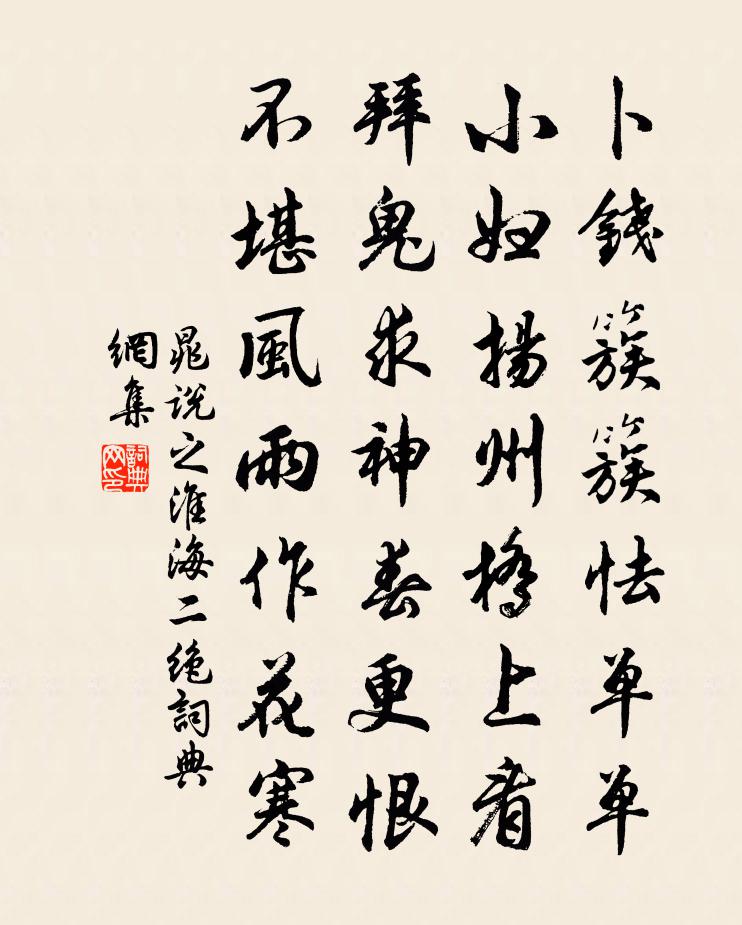 卜錢簇簇怯單單
小婦揚州橋上看
拜鬼求神春更恨
不堪風雨作花寒
晁說之淮海二絶詞典
網集
詞典網印